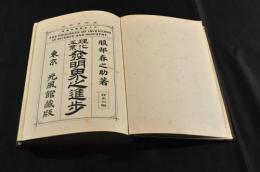 THE PROGRESS OF INVENTION
IN SCIENCE AND INDUSTRY
服部春之助著
理化工業
發明界之進歩
東京 光風館蔵版